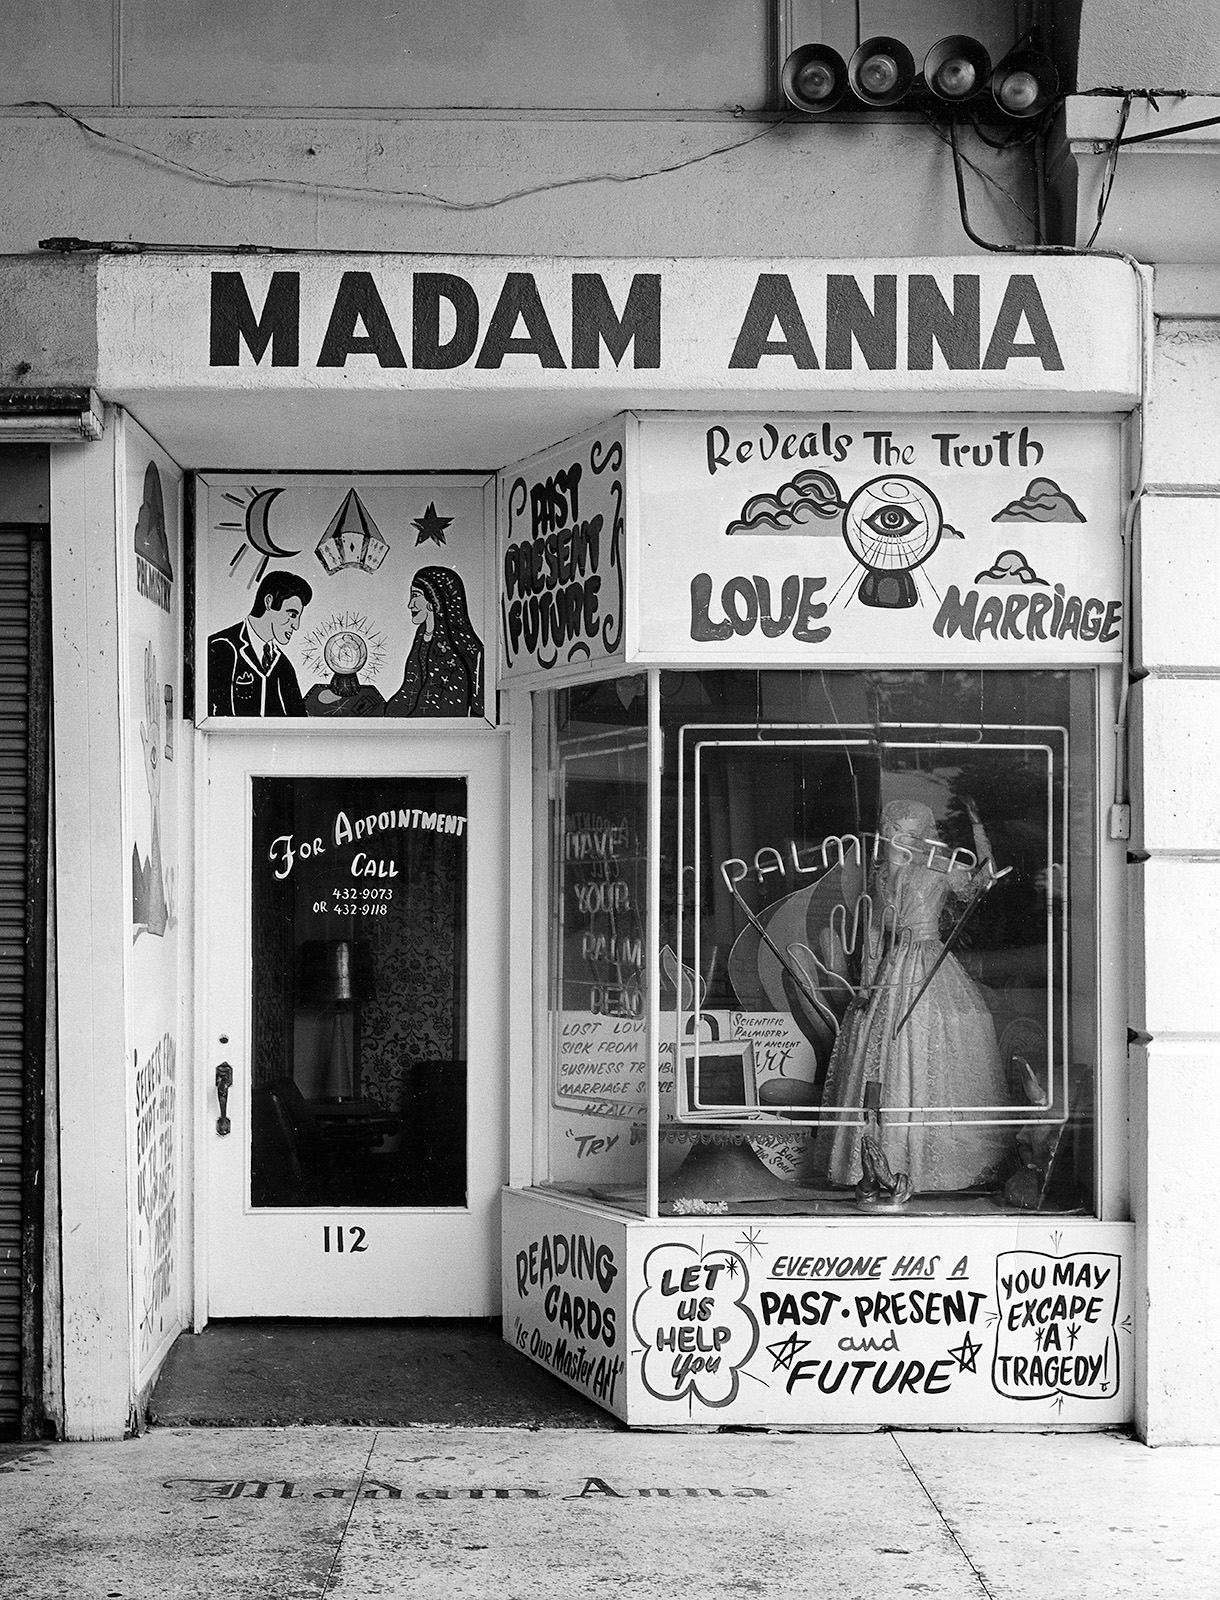 MADAM ANNA
Reveals The Truth
LOVE
MARRIAGE
PAST
PRESENT
FUTURE
PALMISTRY
For Appointment
Call
432-9073
OR 432-9118
PALMISTRY
HAVE
YOUR
PALM
READ
LOST LOVE
SICK FROM
BUSINESS
MARRIAGE
HEALTH
"TRY
Scientific
Palmistry
N ANCIENT
Art
Ball
The Soul
SECRETS FROM
EGYPT
US
PAST
PRESENT
FUTURE
112
READING
CARDS
"Is Our Master Art"
LET
US
HELP
You
EVERYONE HAS A
PAST·PRESENT
and
FUTURE
YOU MAY
EXCAPE
*A*
TRAGEDY!
Madam Anna